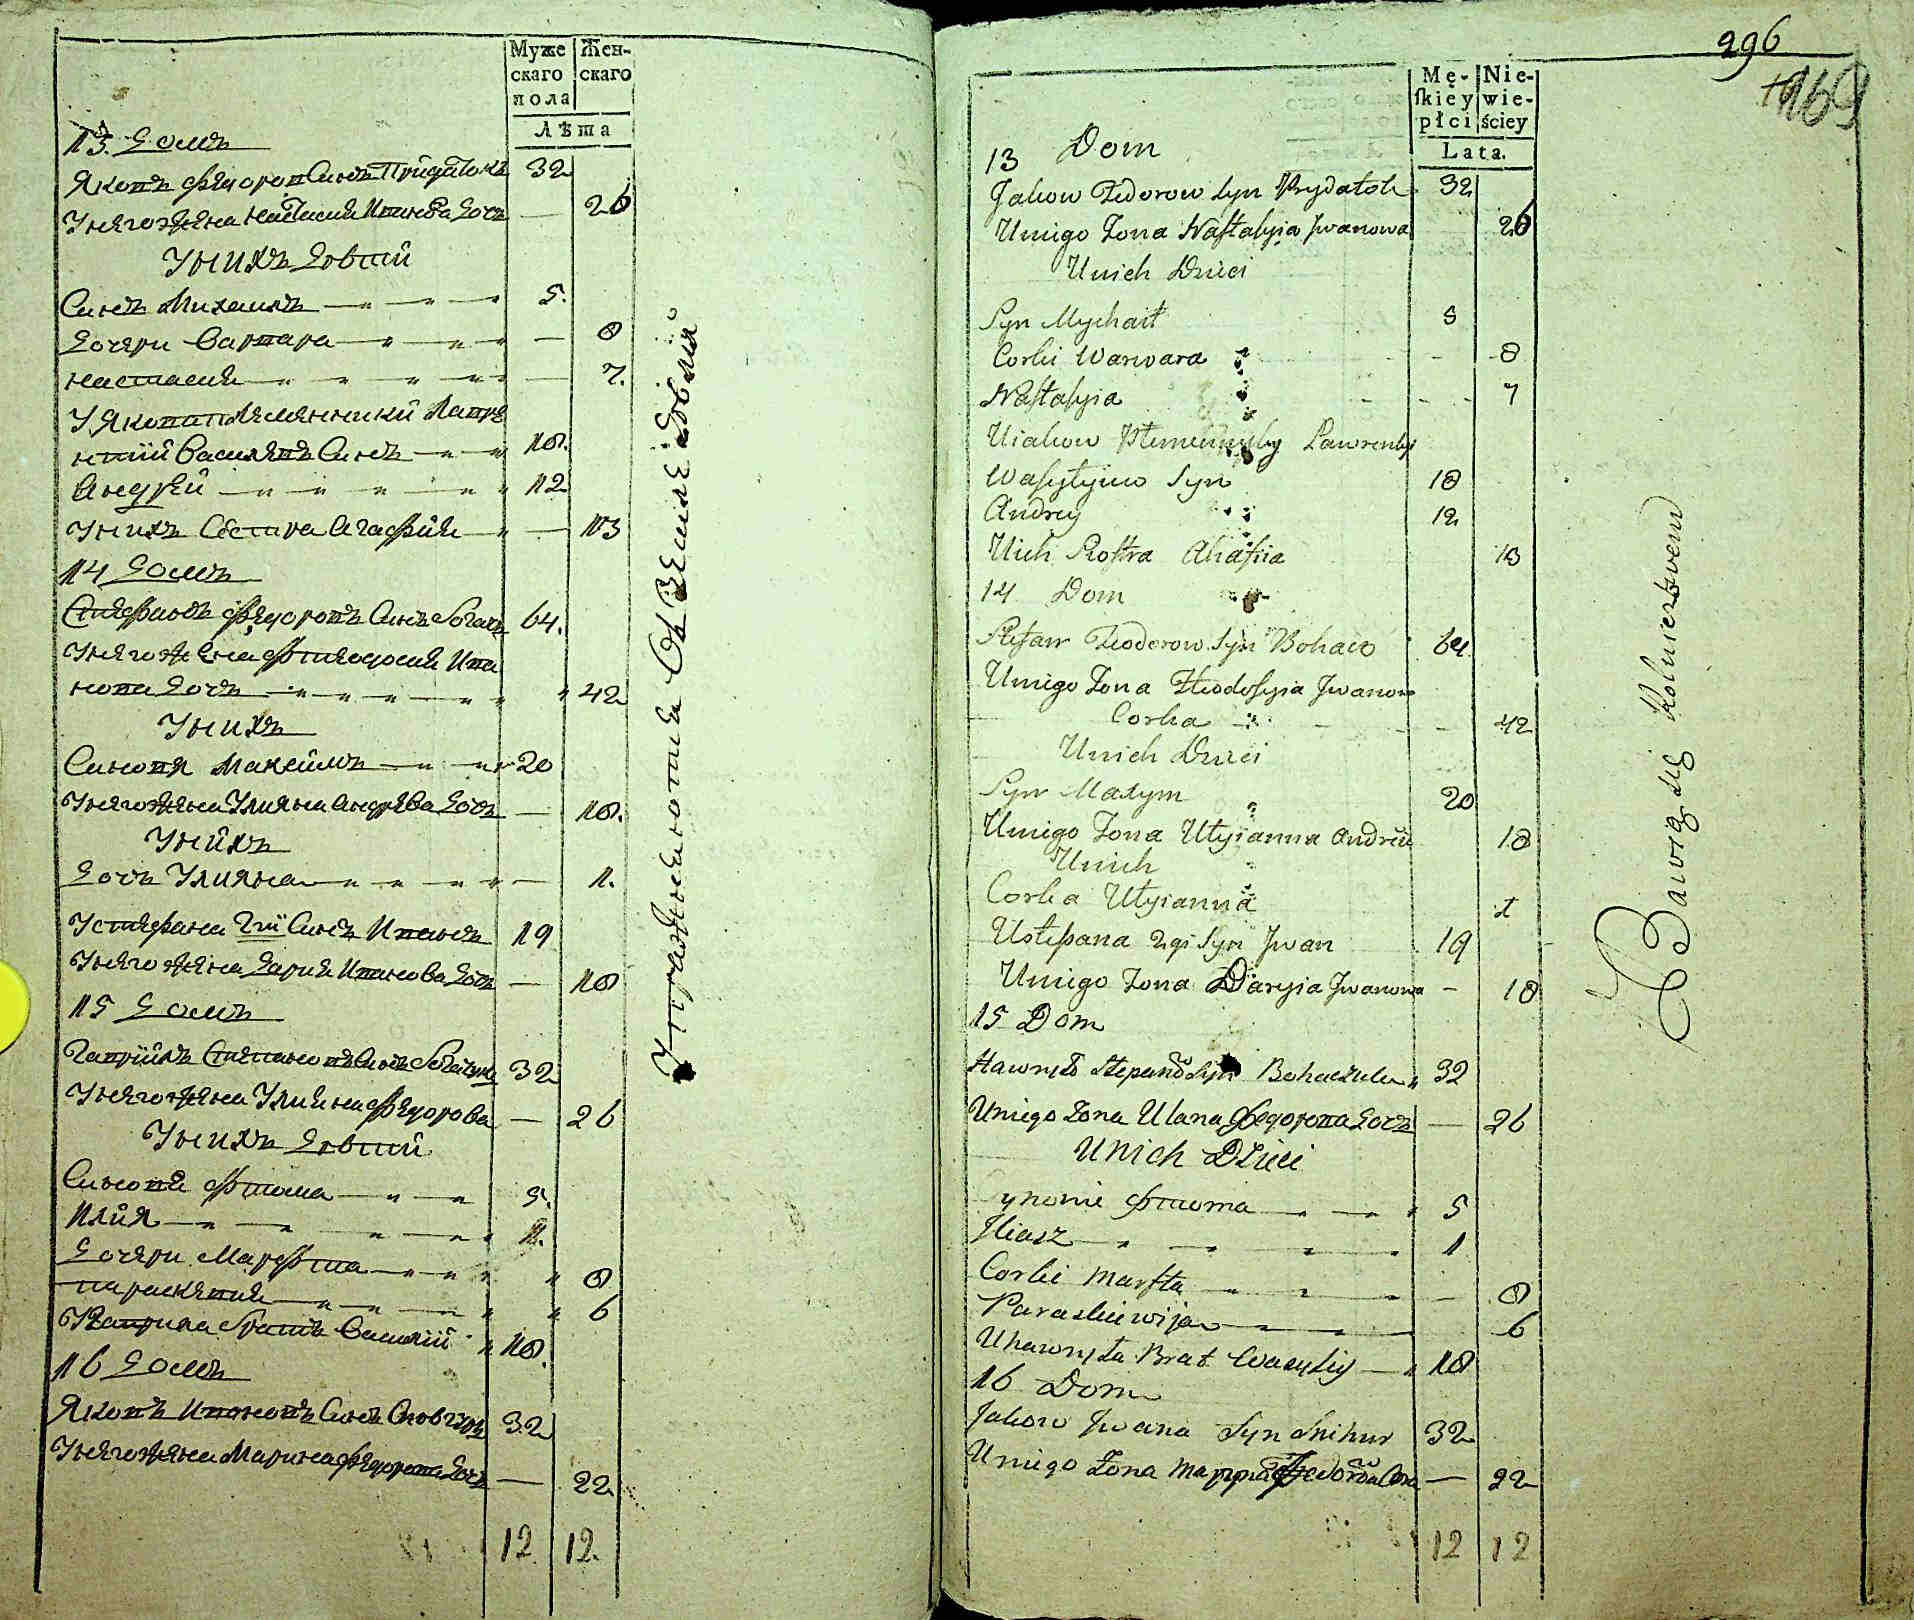 Муже
скаго
пола
Жен-
скаго
Лѣта
13. Домъ
Яковъ Федоровъ Синъ Придатокъ 32
У него жена Настасия Иванова дочь — 26
У нихъ дѣти
Синъ Михаилъ 5.
Дочери Варвара — 8
Настасия — 7.
У Якова племенники Лавре
нтій Василевъ Синъ 18.
Андрей 12
У нихъ Сестра Агафия — 13
14 Домъ
Стефанъ Федоровъ Синъ Богачъ 64.
У него жена Феодосия Ива
нова дочь 42
У нихъ
Синовя Максимъ 20
У него жена Улияна Андрева дочь — 18.
У нихъ
Дочь Улияна — 1.
У Стефана 2гій Синъ Иванъ 19
У него жена Дария Иванова дочь — 18
15 Домъ
Гаврiилъ Степановъ Синъ 32
У него жена Улияна Федорова — 26
У нихъ дѣти
Синовя Фтома 5.
Илия 1.
Дочери Марфта 8
Параскевия 6
У Гаврила братъ Василий 18.
16 Домъ
Яковъ Ивановъ Синъ 32
У него жена Марина Федорова дочь — 22
12 12.
296
169
Mę-
skiey
płci
Nie-
wie-
ściey
Lata.
13 Dom
Jakow Fedorow Syn Prydatok 32
Uniego Żona Nastasyia Jwanowa 26
Unich Dzieci
Syn Mychaił 5
Corki Warwara — 8
Nastasyia — 7
Uiakow Lawrenty
Wasylyiuw Syn 18
Andrey 12
Uich Siostra Ahafiia 13
14 Dom
Stefan Teodorow Syn Bohacz 64
Uniego Żona Theodosyia Jwanow
Corka — 42
Unich Dzieci
Syn Maxym 20
Uniego Żona Ulyianna Andrei 18
Unich
Corka Ulyianna 1
Ustepana 2gi Syn Jwan 19
Uniego Żona Daryia Jwanowa — 18
15 Dom
Hawryło Stepanow Syn Bohaczuk 32
Uniego Żona Ulana Федорова дочь — 26
Unich Dzieci
Synowie Фтома 5
Jliasz 1
Corki Marfta — 8
Paraskiewija 6
Uhawryła Brat Wasyliy 18
16 Dom
Jakow Jwana Syn Snihur 32
Uniego Żona — 22
12 12
Упражняются въ земледѣлии
Bawią się Rolnictwem